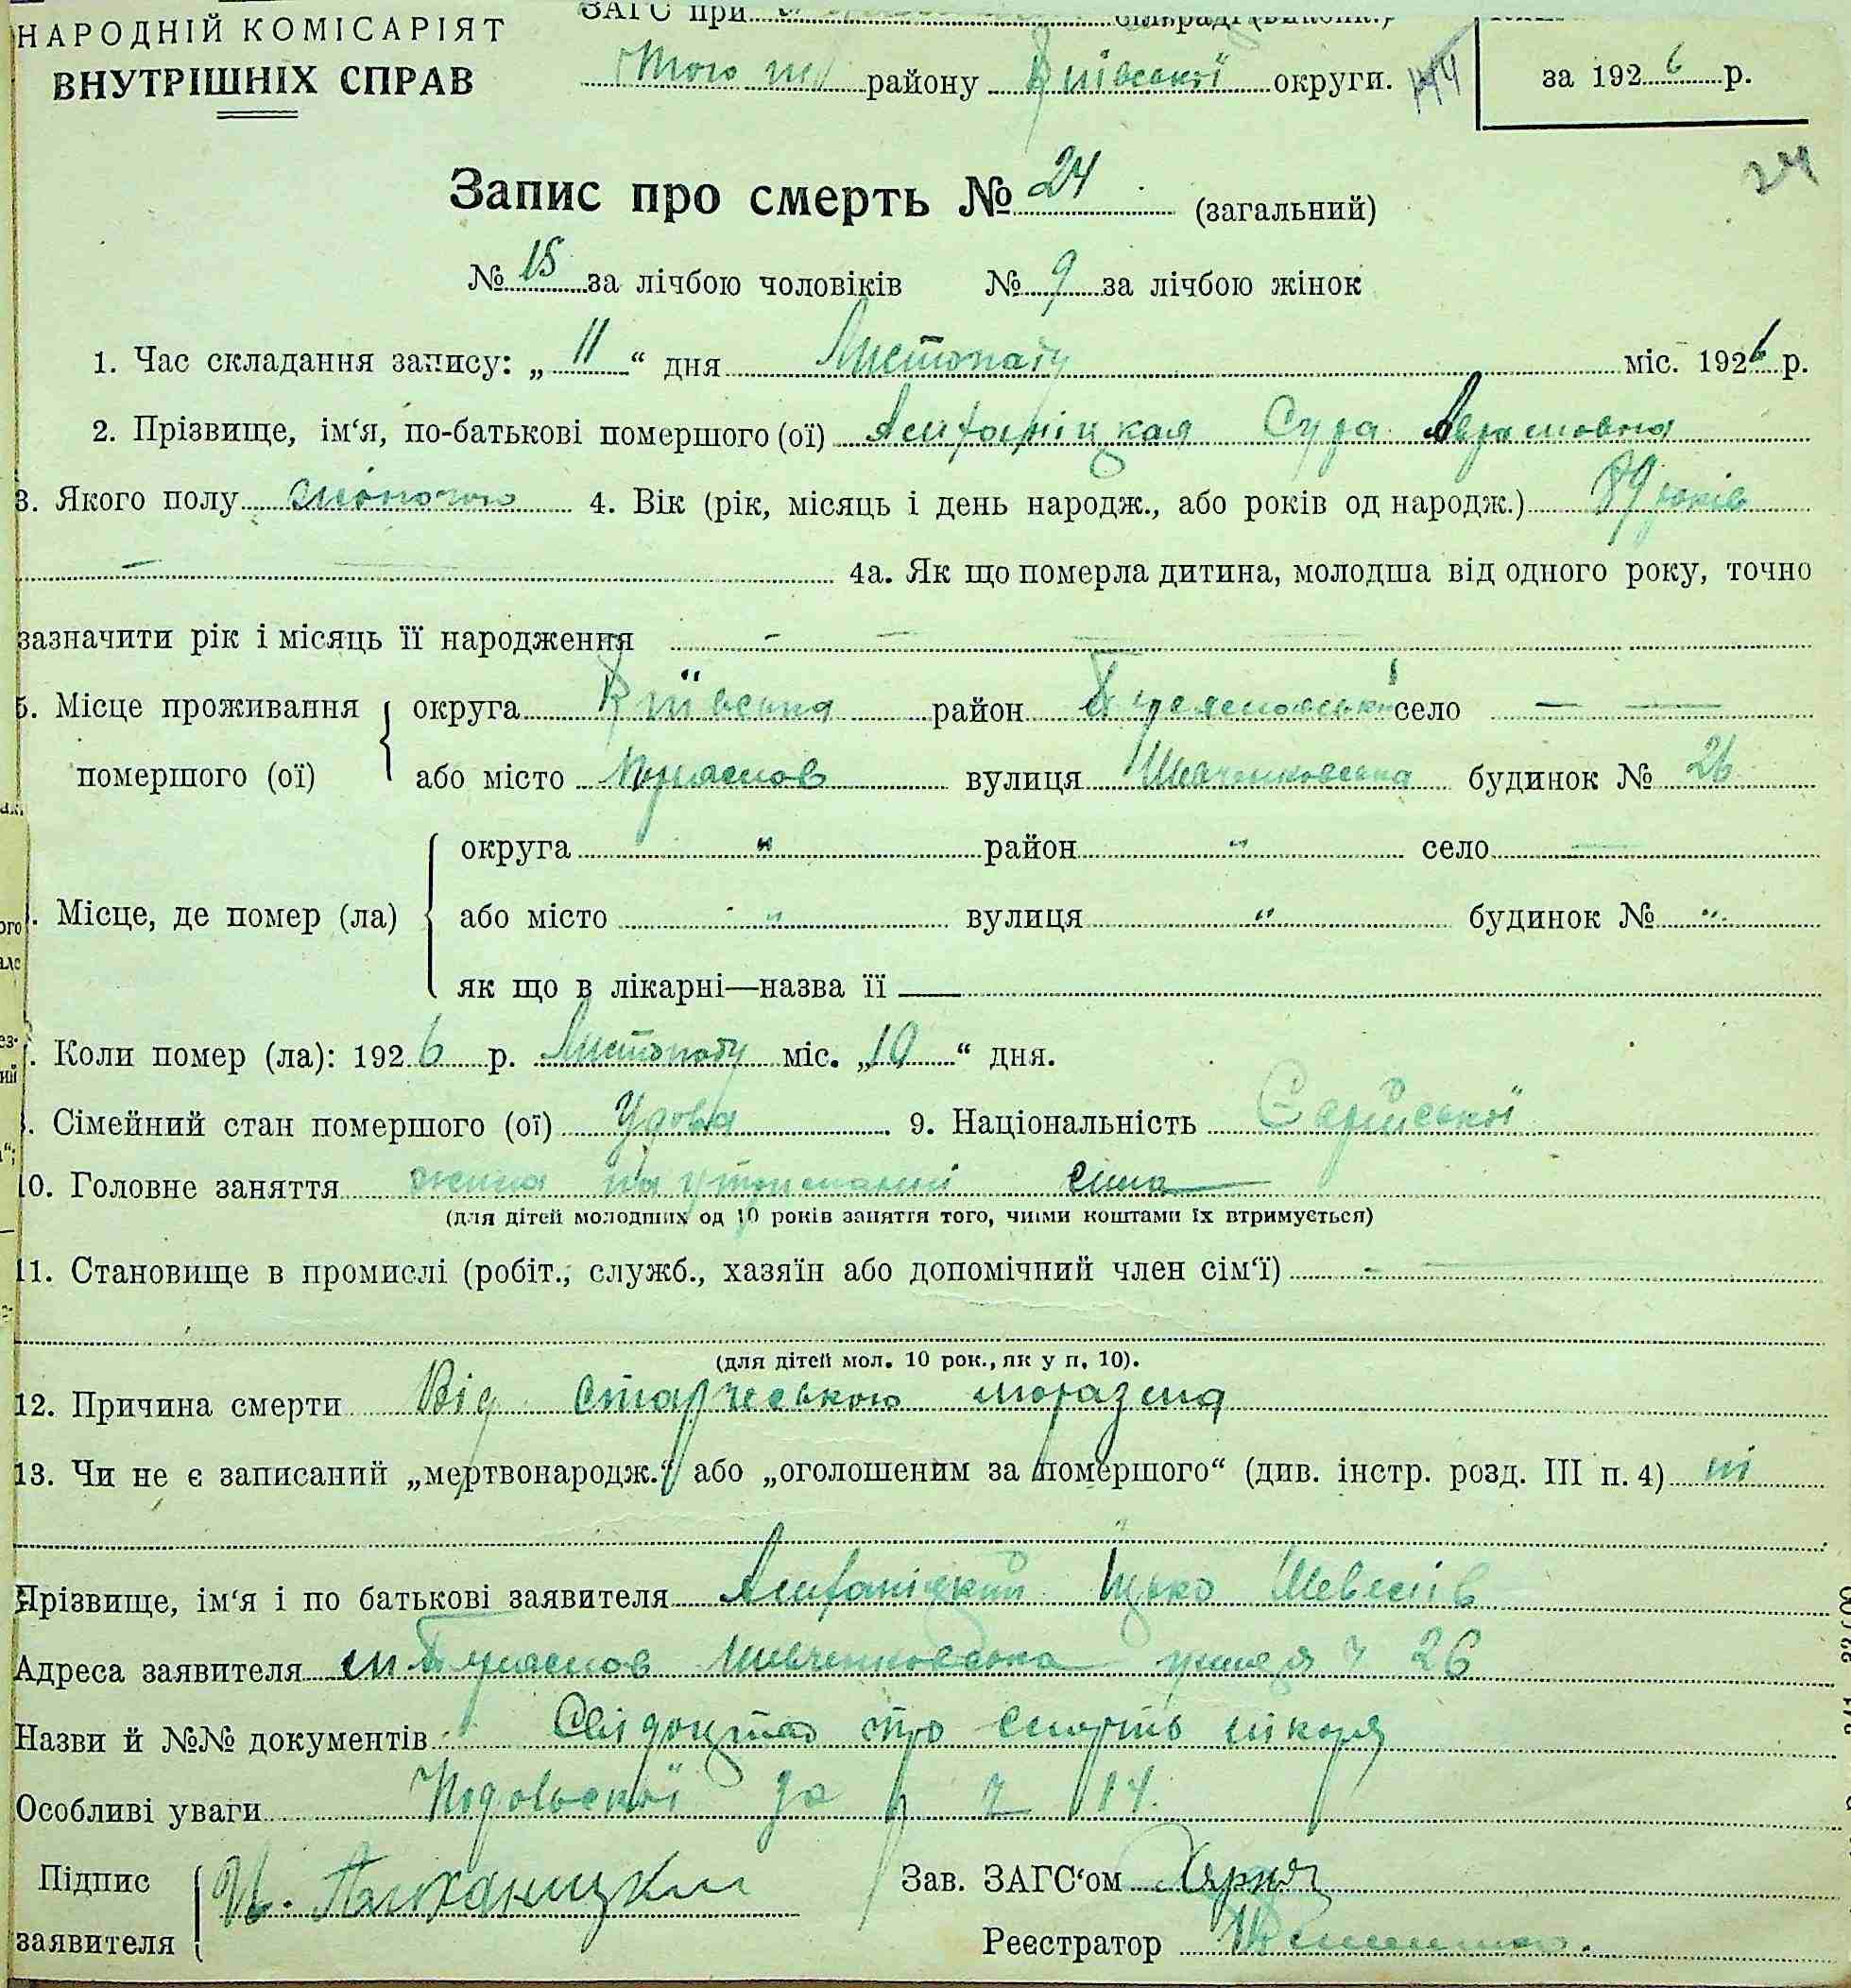 НАРОДНІЙ КОМІСАРІЯТ
ВНУТРІШНІХ СПРАВ
ЗАГС при сільраді (викон.)
Того ж району Київської округи.
за 1926 р.
24
Запис про смерть № 24 (загальний)
№ 15 за лічбою чоловіків № 9 за лічбою жінок
1. Час складання запису: „11“ дня Листопаду міс. 1926 р.
2. Прізвище, ім‘я, по-батькові помершого (ої) Сура Аврамовна
3. Якого полу жіночого 4. Вік (рік, місяць і день народж., або років од народж.) 89 років
— 4а. Як що померла дитина, молодша від одного року, точно
зазначити рік і місяць її народження —
5. Місце проживання помершого (ої) округа Київська район село —
або місто вулиця Шевченковська будинок № 26
Місце, де помер (ла) округа " район " село —
або місто " вулиця " будинок № "
як що в лікарні—назва її —
Коли помер (ла): 1926 р. Листопаду міс. „10“ дня.
Сімейний стан помершого (ої) Удова 9. Національність Єврійської
10. Головне заняття жила на утриманні сина
(для дітей молодших од 10 років заняття того, чиїми коштами їх втримується)
11. Становище в промислі (робіт., служб., хазяїн або допомічний член сім‘ї) —
(для дітей мол. 10 рок., як у п. 10).
12. Причина смерти Від старчеського маразма
13. Чи не є записаний „мертвонародж.“ або „оголошеним за помершого“ (див. інстр. розд. III п. 4) ні
Прізвище, ім‘я і по батькові заявителя Іцько
Адреса заявителя м Шевченковська улиця ч 26
Назви й №№ документів Свідоцтво про смерть лікаря
Особливі уваги Подольської за ч 14.
Підпис заявителя И.
Зав. ЗАГС‘ом
Реєстратор